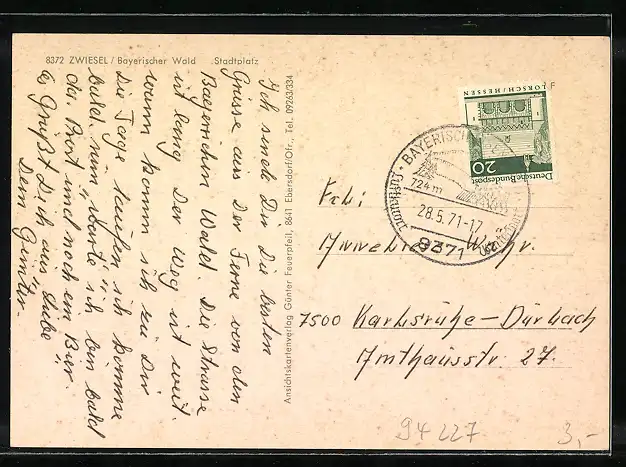 8372 ZWIESEL / Bayerischer Wald Stadtplatz
Ich sende Dir die besten
Grüsse aus der Ferne von den
Bayerischen Wald. Die Strasse
ist lang der Weg ist weit.
wann komm ich zu Dir
die Tage laufen ich komme
bald. nim, warte ich bin bald
da. Brot und noch ein Bier.
Es Grüßt Dich aus Liebe
Dein Günter.
Ansichtskartenverlag Günter Feuerpfeil, 8641 Ebersdorf/Ofr., Tel. 09263/334
LORSCH/HESSEN
20
Deutsche Bundespost
BAYERISCH
724 m
28.5.71-17
8371
Frl:
7500 Karlsruhe-Durlach
Amthausstr. 27.
94227
3,-